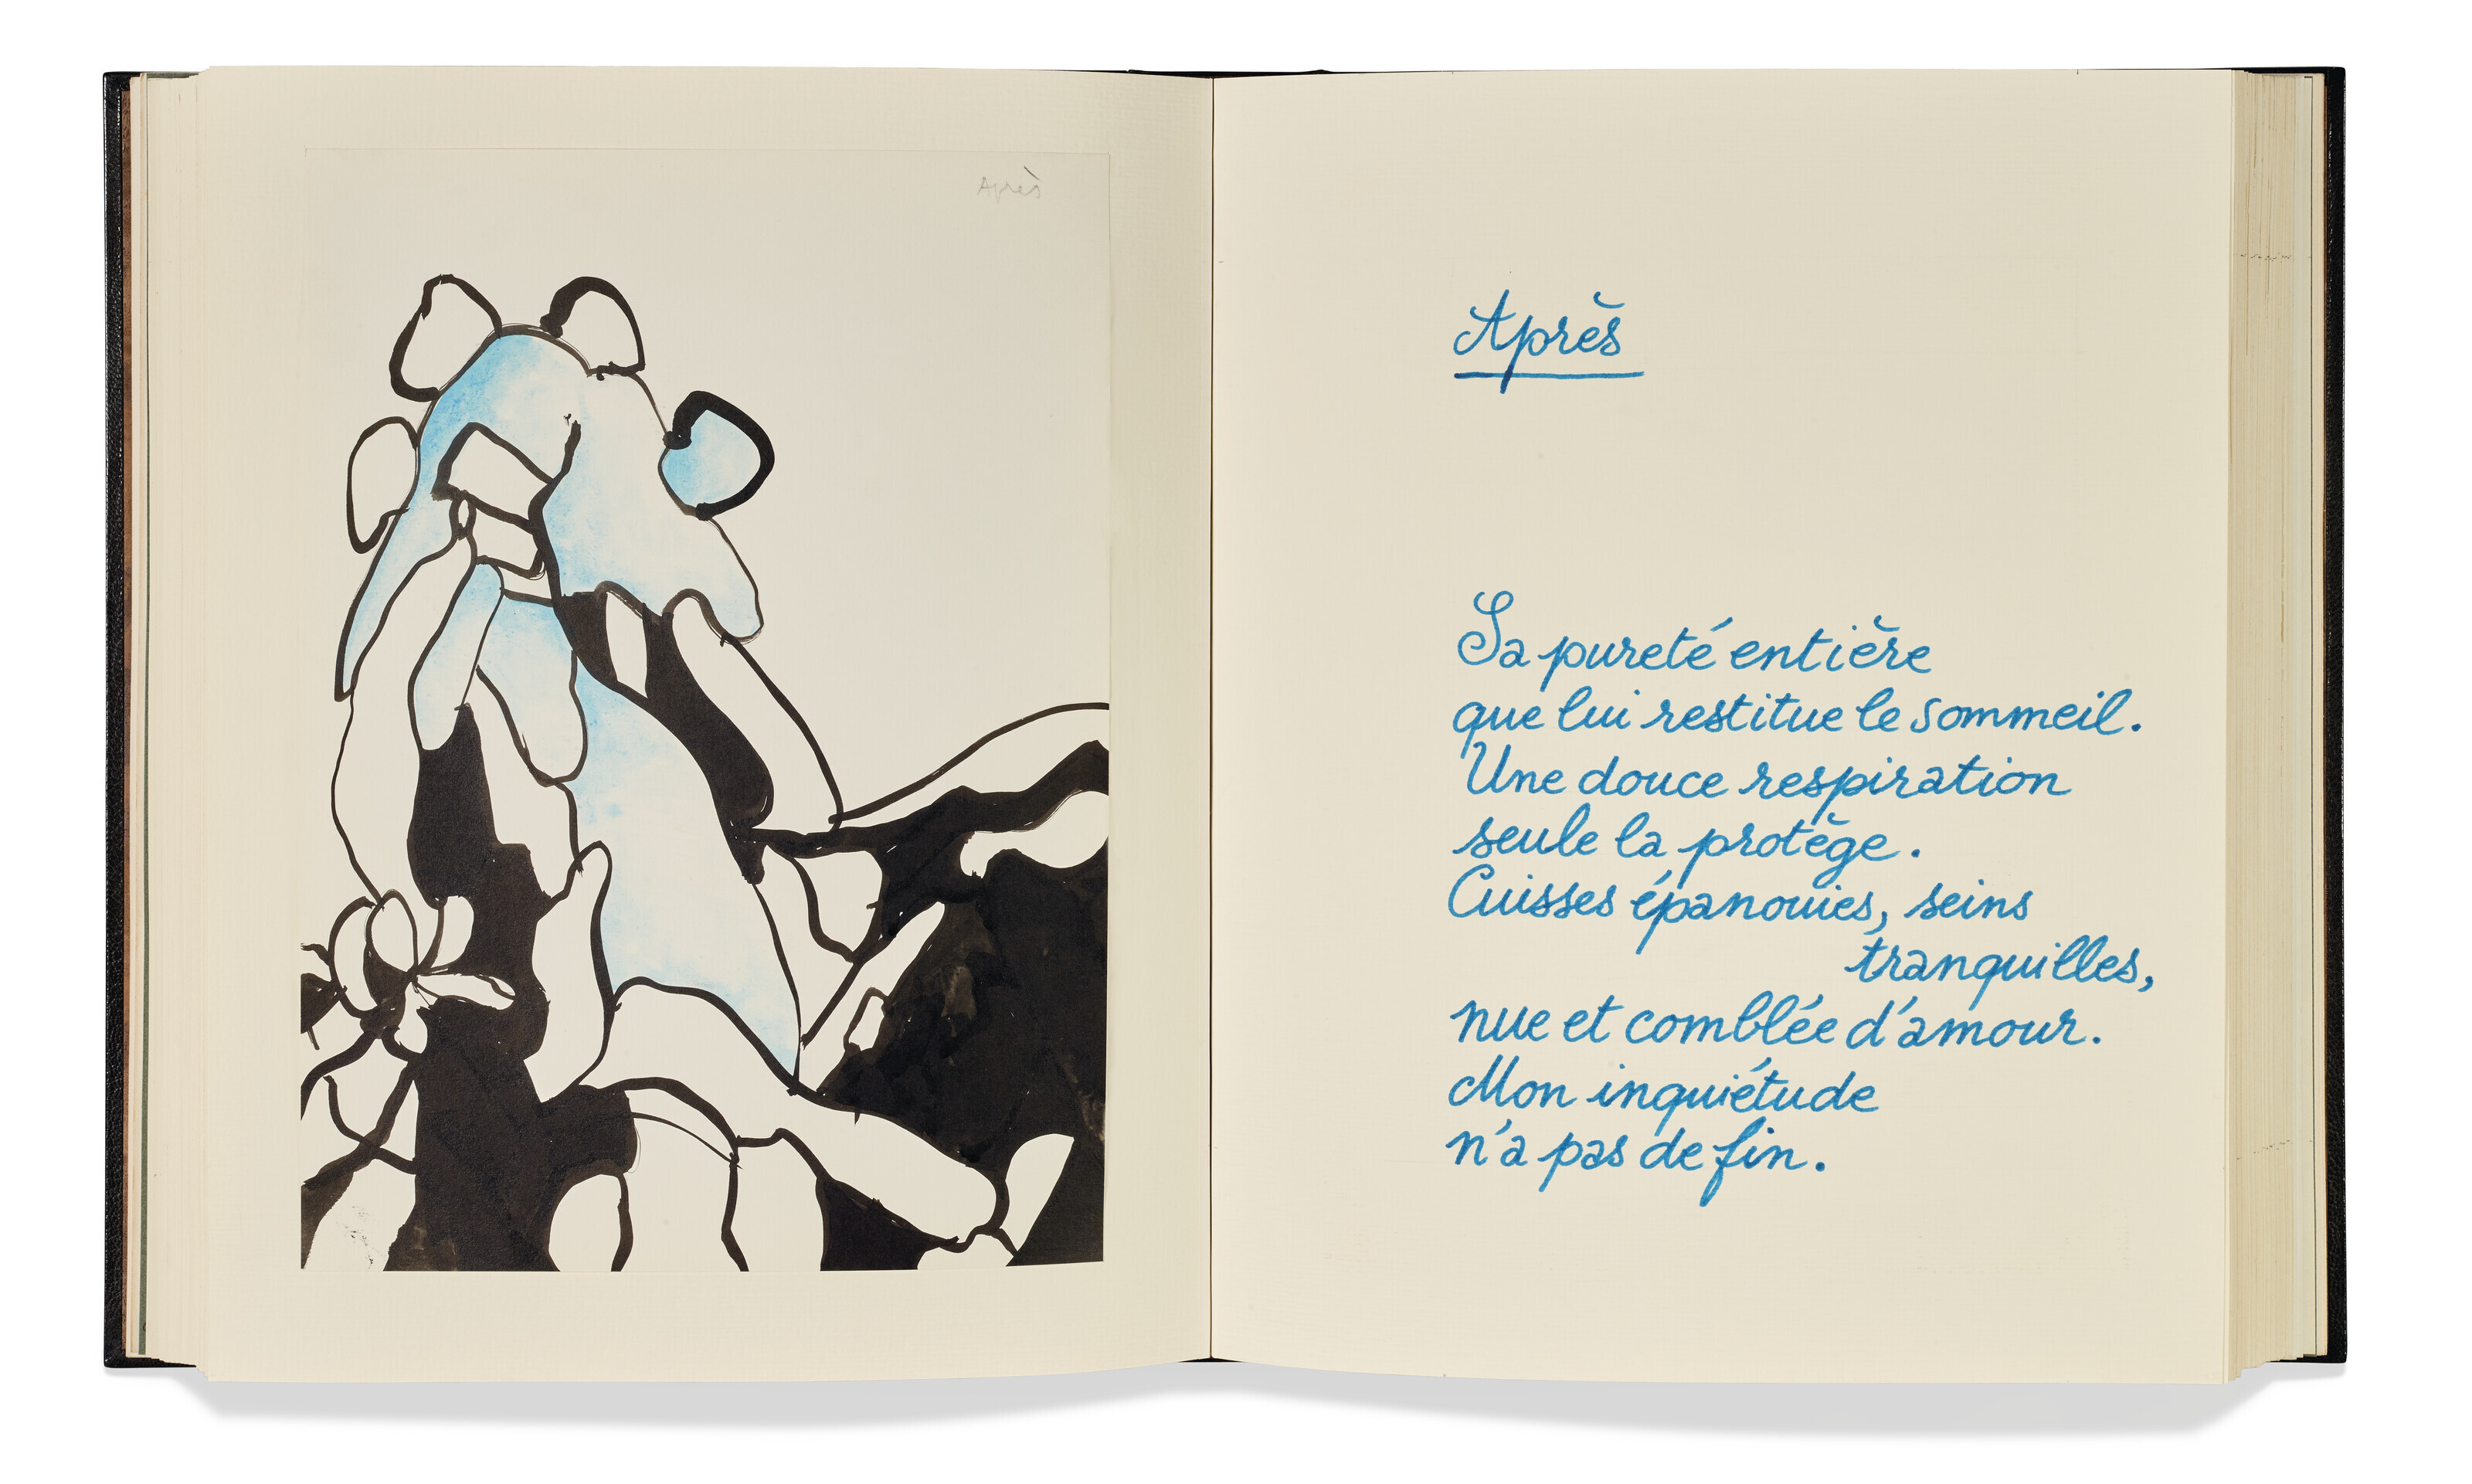 Après
Après
Sa pureté entière
que lui restitue le sommeil.
Une douce respiration
seule la protège.
Cuisses épanouies, seins
tranquilles,
nue et comblée d'amour.
Mon inquiétude
n'a pas de fin.